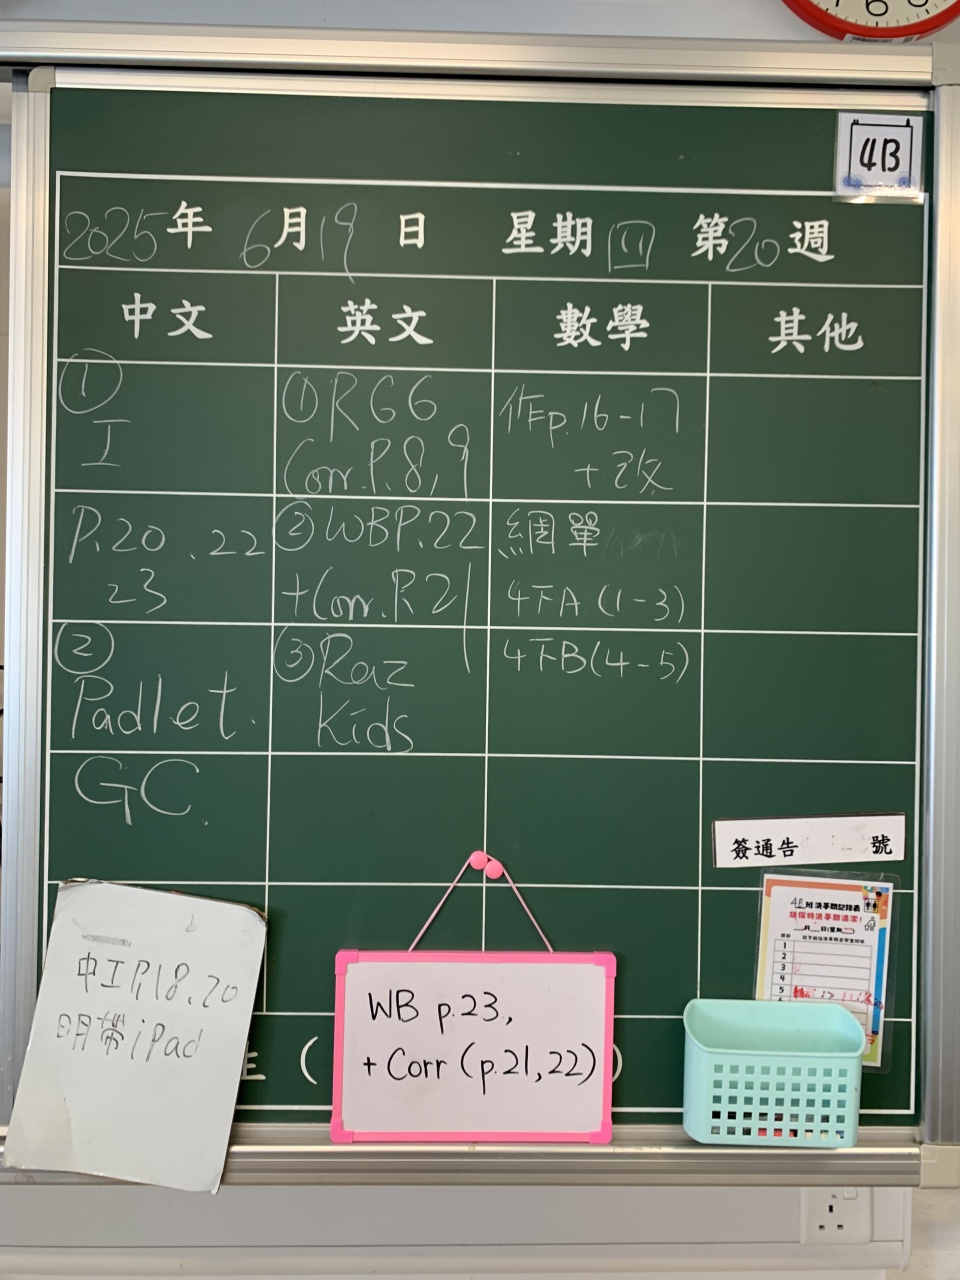 4B
2025年 6月19日 星期四 第20週
中文 英文 數學 其他
①
工
P.20、22
23
②
Padlet.
GC.
①RG6
Corr.P.8,9
②WBP.22
+Corr.P.21
③Raz
Kids
作p.16-17
+改
網單
4下A(1-3)
4下B(4-5)
簽通告 號
4B班洗手間記錄表
請保持洗手間清潔!
1
2
3
4
5
中工P.18、20
明帶iPad
WB p.23,
+ Corr (p.21,22)
生 ( )